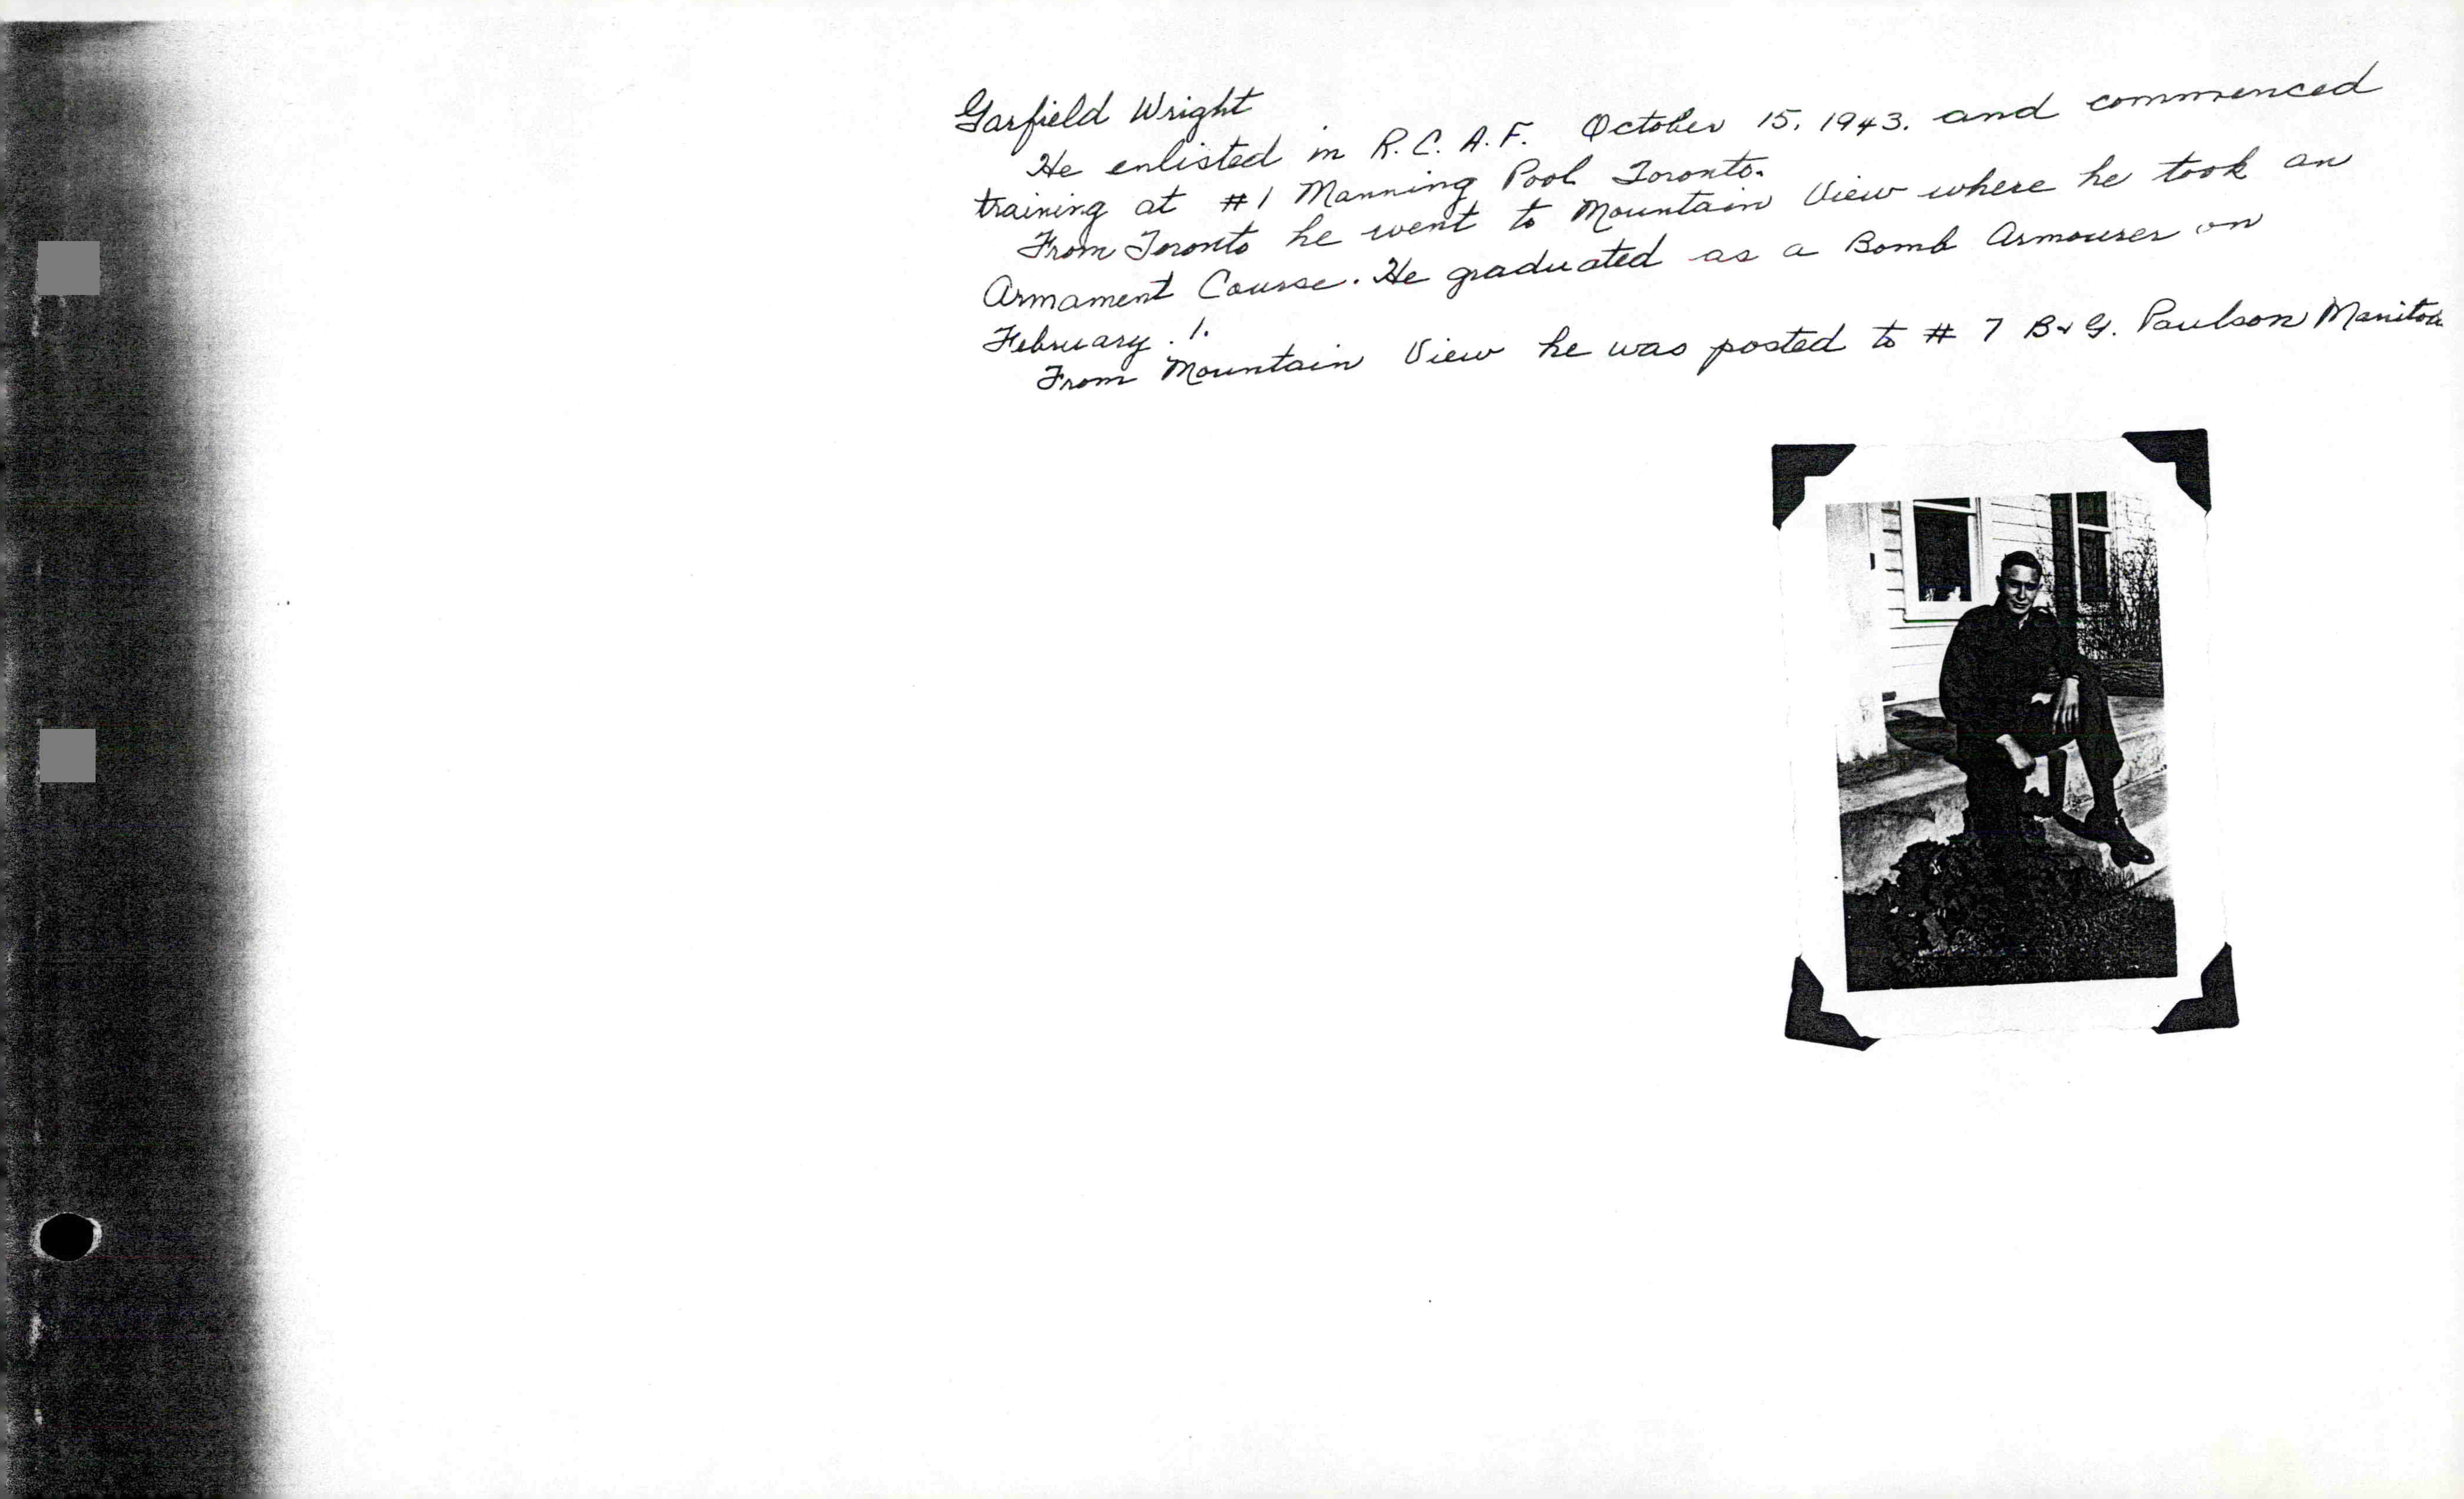 Garfield Wright
He enlisted in R.C.A.F. October 15, 1943. and commenced
training at #1 Manning Pool Toronto.
From Toronto he went to Mountain View where he took an
Armament Course. He graduated as a Bomb Armourer on
February. 1.
From Mountain View he was posted to # 7 B & G. Paulson